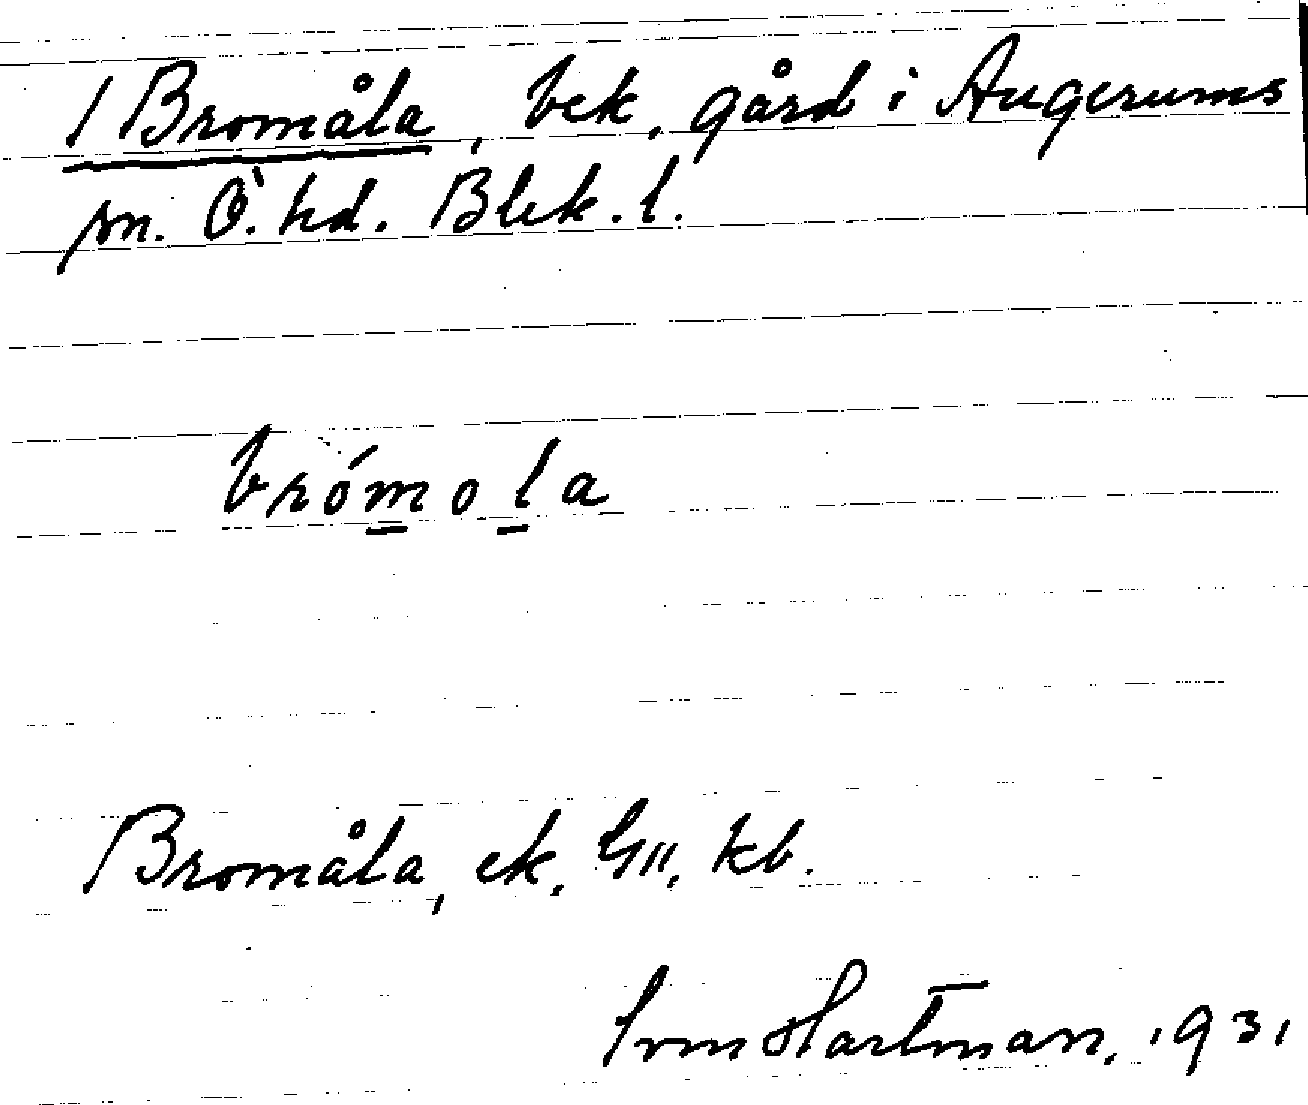 1 Bromåla, bek. gård i Augerums
sn. Ö. hd. Blek. l.
brómola
Bromåla, ek. GII, kb.
Hartman, 1931